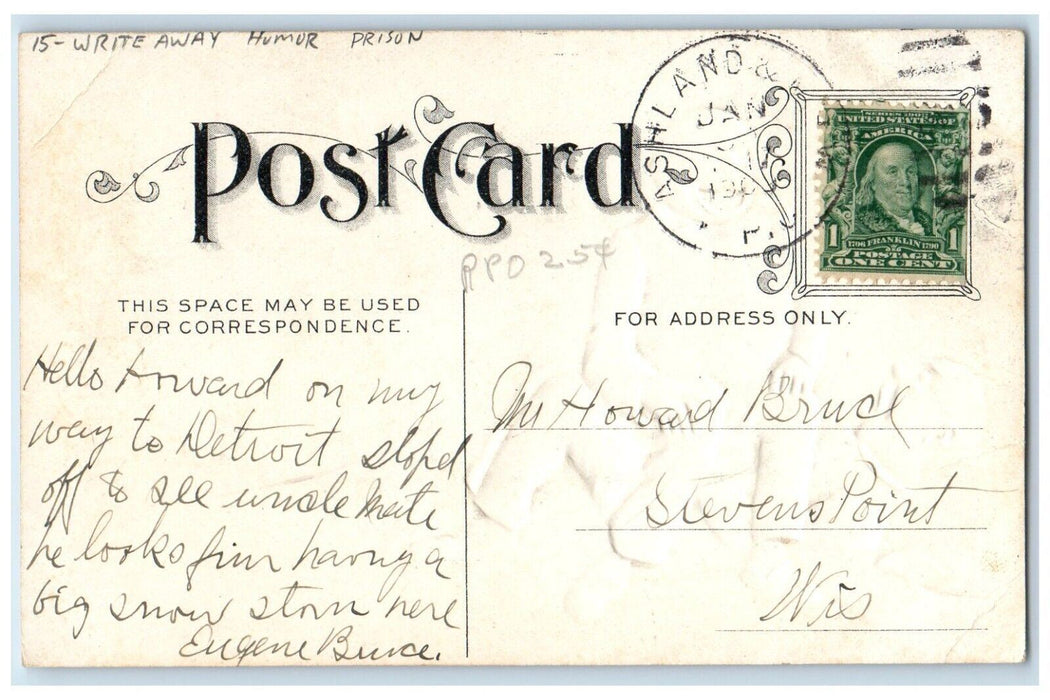 15- WRITE AWAY HUMOR PRISON
ASHLAND &
JAN
Post Card
SERIES 1902
UNITED STATES OF
AMERICA
1 1706 FRANKLIN 1790 1
POSTAGE
ONE CENT
RPO 254
THIS SPACE MAY BE USED
FOR CORRESPONDENCE.
FOR ADDRESS ONLY.
Hello Howard on my
way to Detroit stoped
off to see uncle
he looks finn having a
big snow storm here
Eugene Bruce.
Mr Howard Bruce
Stevens Point
Wis